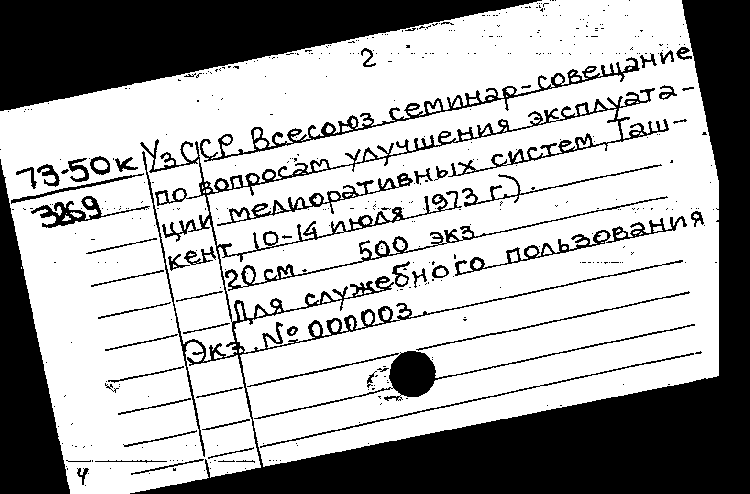 2
73-50к
3269
УзССР. Всесоюз. семинар-совещание
по вопросам улучшения эксплуата-
ции мелиоративных систем, Таш-
кент, 10-14 июля 1973 г.).
20 см. 500 экз.
Для служебного пользования.
Экз. № 000003.
4